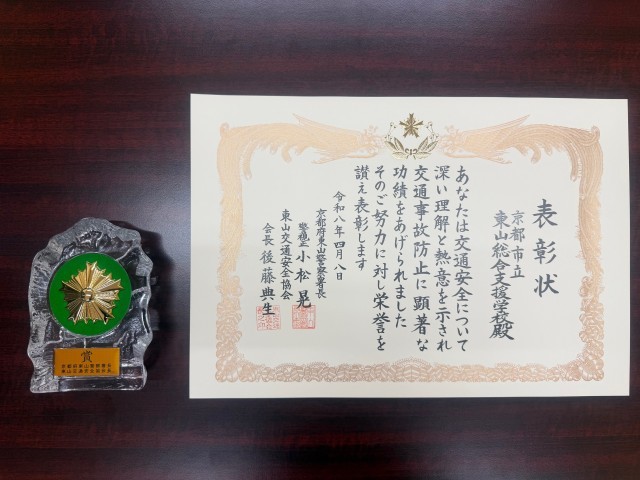 表彰状
京都市立
東山総合支援学校殿
あなたは交通安全について
深い理解と熱意を示され
交通事故防止に顕著な
功績をあげられました
そのご努力に対し栄誉を
讃え表彰します
令和八年四月八日
京都府東山警察署長
警視正 小松 晃
東山交通安全協会
会長 後藤典生
賞
京都府東山警察署長
東山交通安全協会長